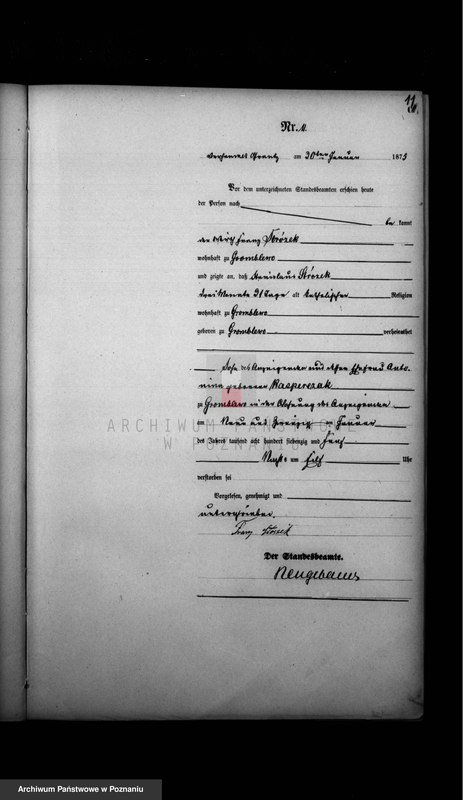 11.
Nr. 11.
am 30ten Januar 1875
Vor dem unterzeichneten Standesbeamten erschien heute
der Person nach
be kannt
der Wirth Franz Strózek
wohnhaft zu Gromblewo
und zeigte an, daß Stanislaus Strózek
drei Monate 21 Tage alt katholischer Religion
wohnhaft zu Gromblewo
geboren zu Gromblewo verheirathet
Sohn des Anzeigenden und dessen Ehefrau Anto-
nina geborenen Kasperczak
zu Gromblewo in der Wohnung des Anzeigenden
am Neun und zwanzig ten Januar
des Jahres tausend acht hundert siebenzig und fünf
Nachts um Elf Uhr
verstorben sei
Vorgelesen, genehmigt und
unterschrieben.
Franz
Der Standesbeamte.
Neugebauer
ARCHIWUM PAŃSTWOWE
W POZNANIU
Archiwum Państwowe w Poznaniu